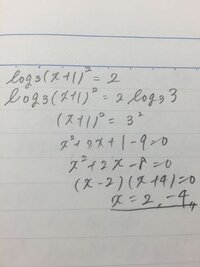 log₃(x+1)² = 2
log₃(x+1)² = 2 log₃3
(x+1)² = 3²
x²+2x+1-9=0
x²+2x-8=0
(x-2)(x+4)=0
x=2,-4〃